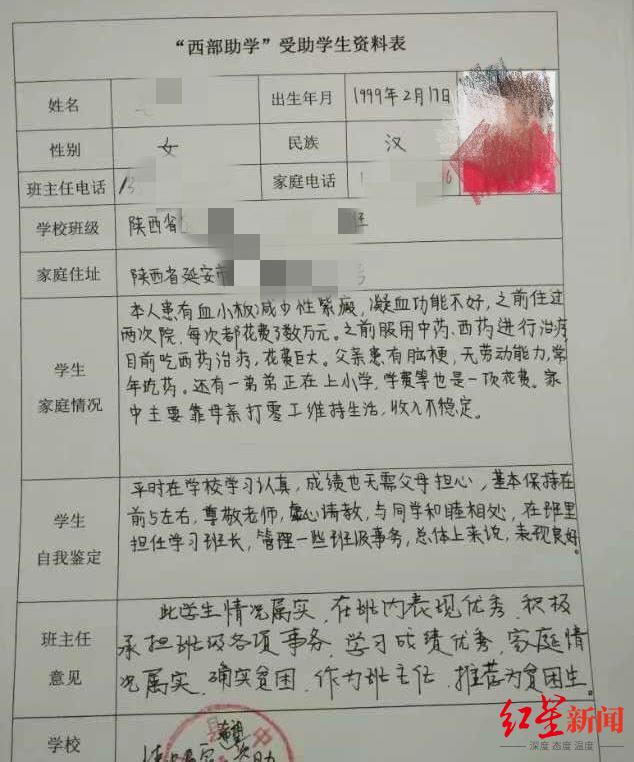 “西部助学”受助学生资料表
姓名 出生年月 1999年2月17日
性别 女 民族 汉
班主任电话 家庭电话
学校班级 陕西省
家庭住址 陕西省延安市
学生
家庭情况
本人患有血小板减少性紫癜，凝血功能不好，之前住过
两次院，每次都花费了数万元。之前服用中药、西药进行治疗
目前吃西药治疗，花费巨大。父亲患有脑梗，无劳动能力，常
年吃药。还有一弟弟正在上小学，学费等也是一项花费。家
中主要靠母亲打零工维持生活，收入不稳定。
学生
自我鉴定
平时在学校学习认真，成绩也无需父母担心，基本保持在
前5左右，尊敬老师，虚心请教，与同学和睦相处，在班里
担任学习班长，管理一些班级事务，总体上来说，表现良好。
班主任
意见
此学生情况属实，在班内表现优秀，积极
承担班级各项事务，学习成绩优秀，家庭情
况属实，确实贫困，作为班主任，推荐为贫困生。
学校
县 中
情况属实
资助
红星新闻
深度 态度 温度